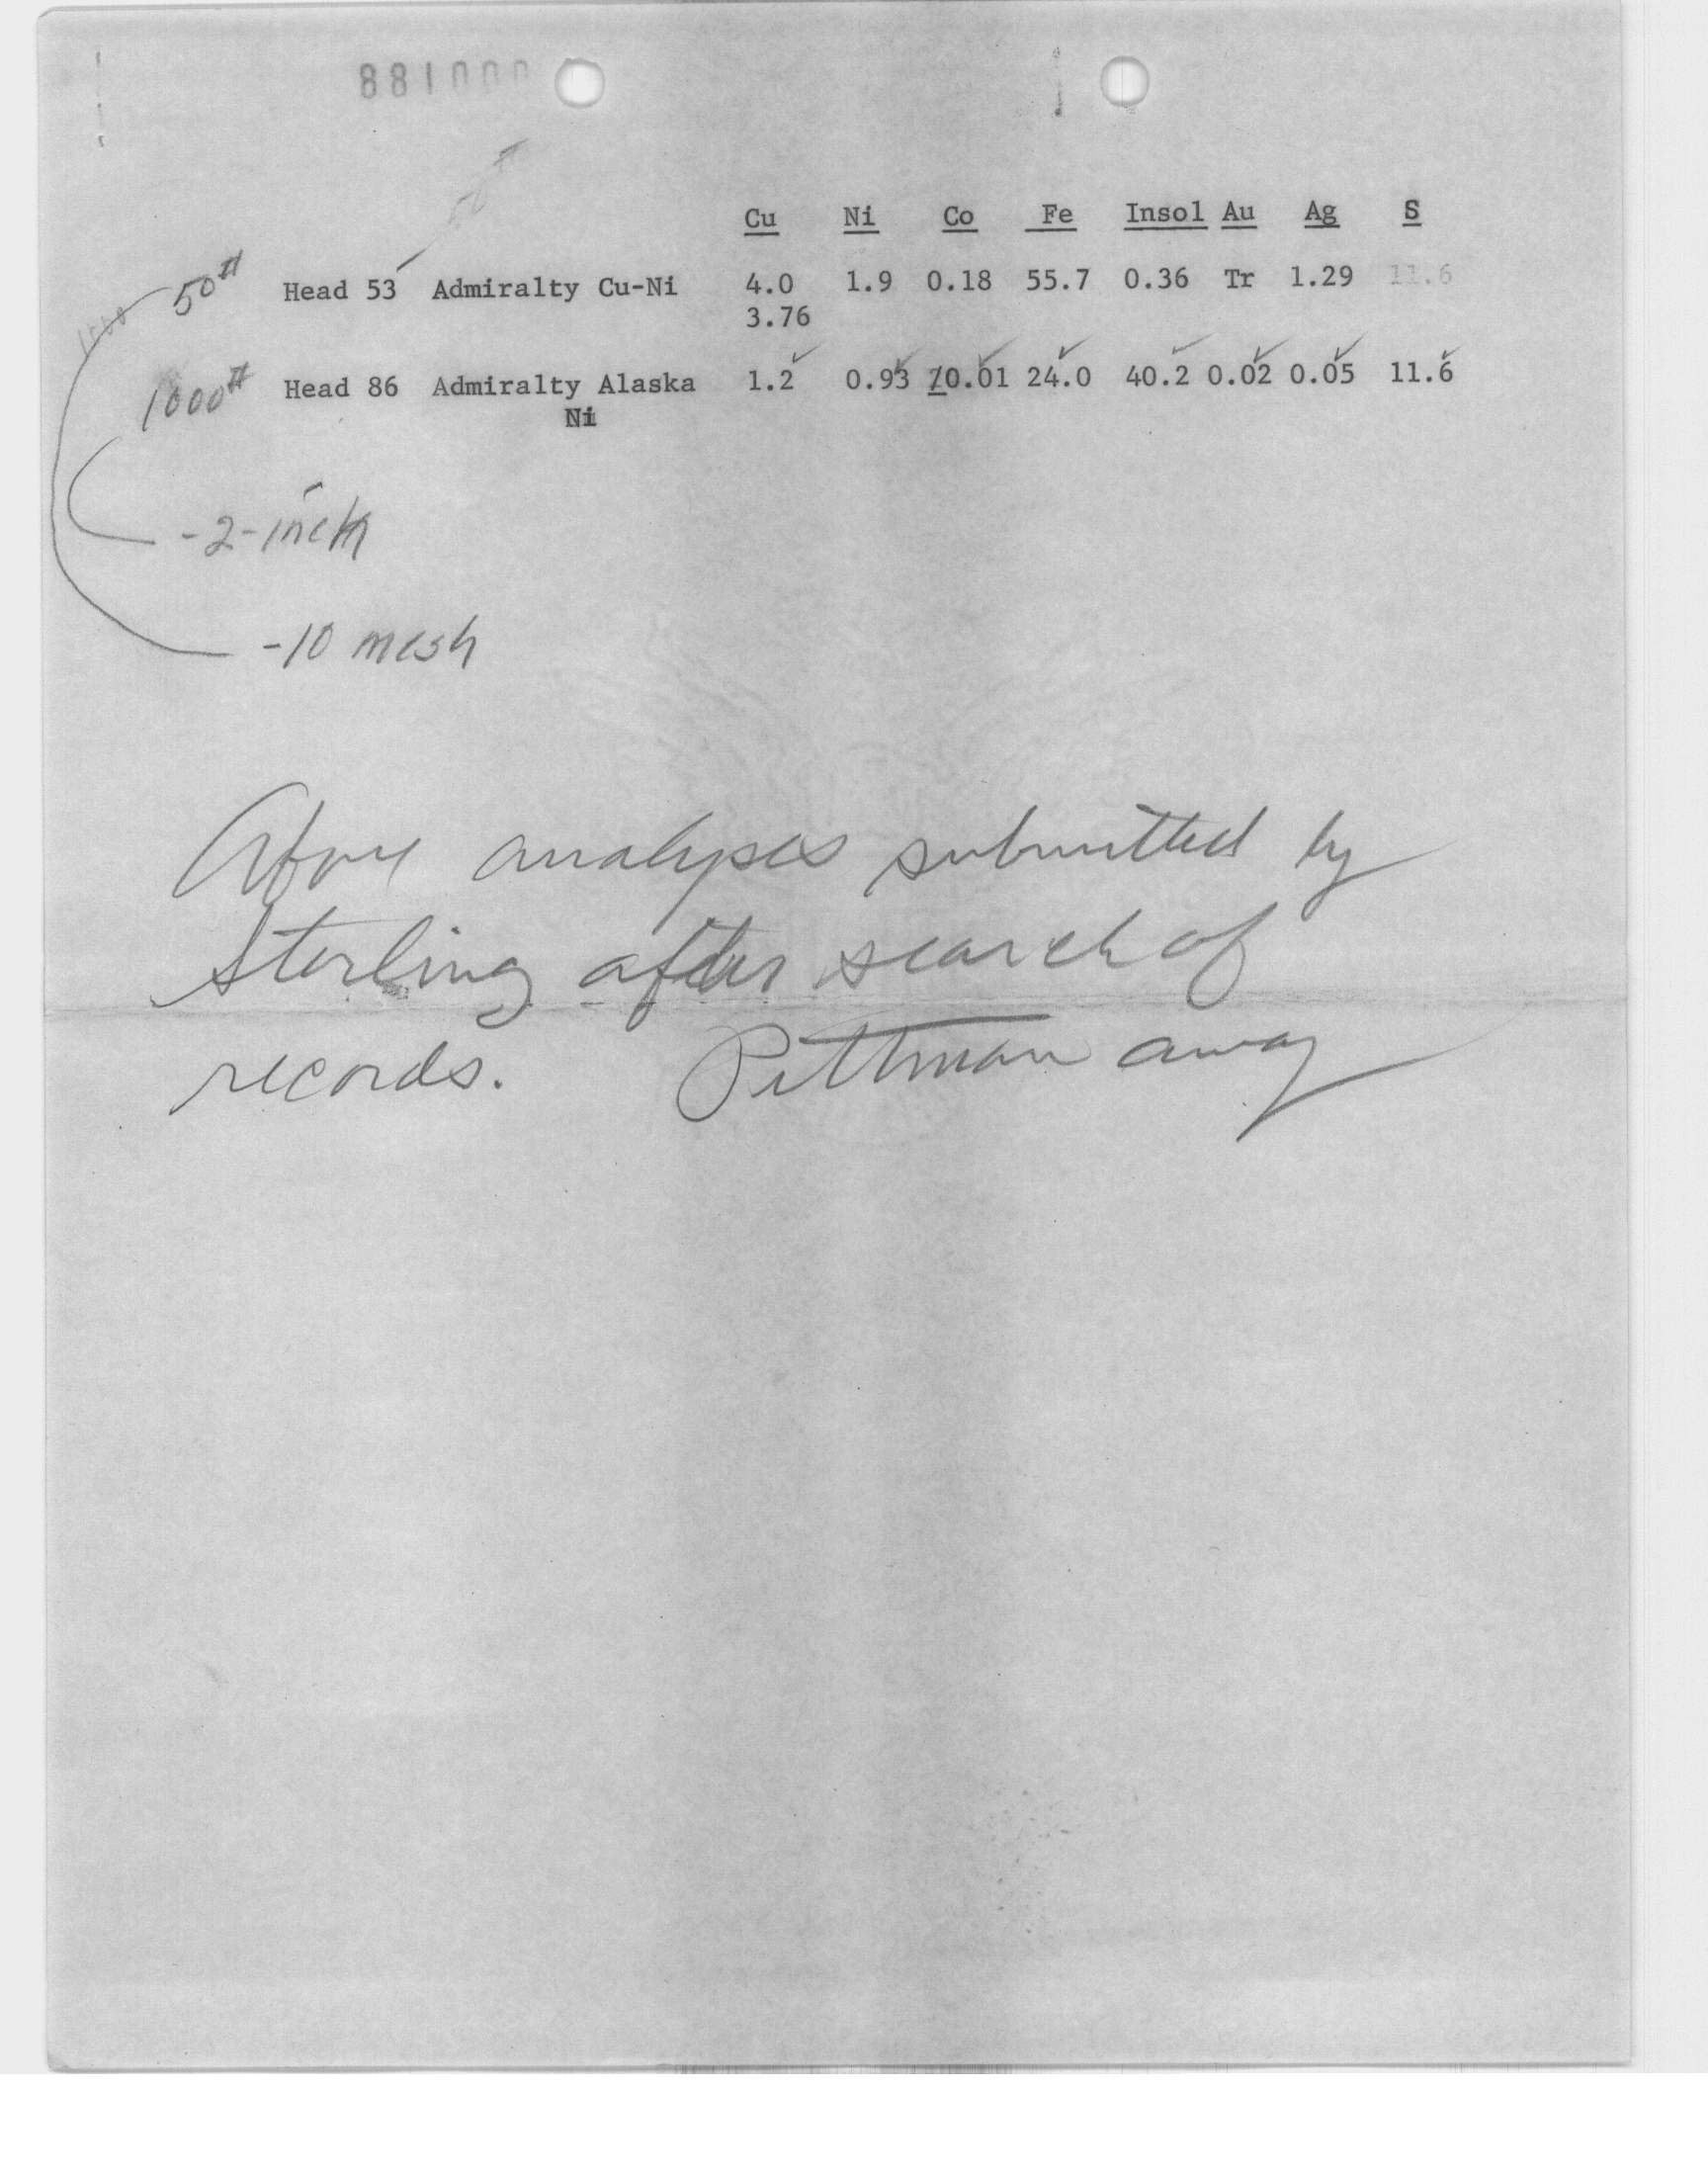 881000
Cu Ni Co Fe Insol Au Ag S
50# Head 53 Admiralty Cu-Ni 4.0 1.9 0.18 55.7 0.36 Tr 1.29 11.6
3.76
1000# Head 86 Admiralty Alaska 1.2 0.93 0.01 24.0 40.2 0.02 0.05 11.6
Ni
-2-inch
-10 mesh
Above analyses submitted by
Sterling after search of
records. Pittman away